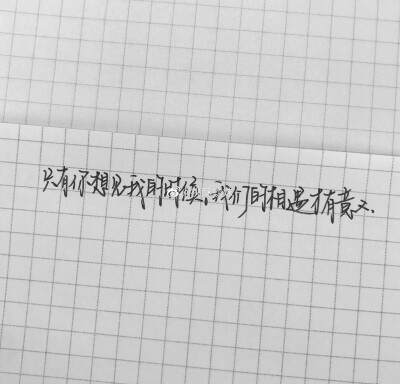 只有你想见我的时候,我们的相遇才有意义.